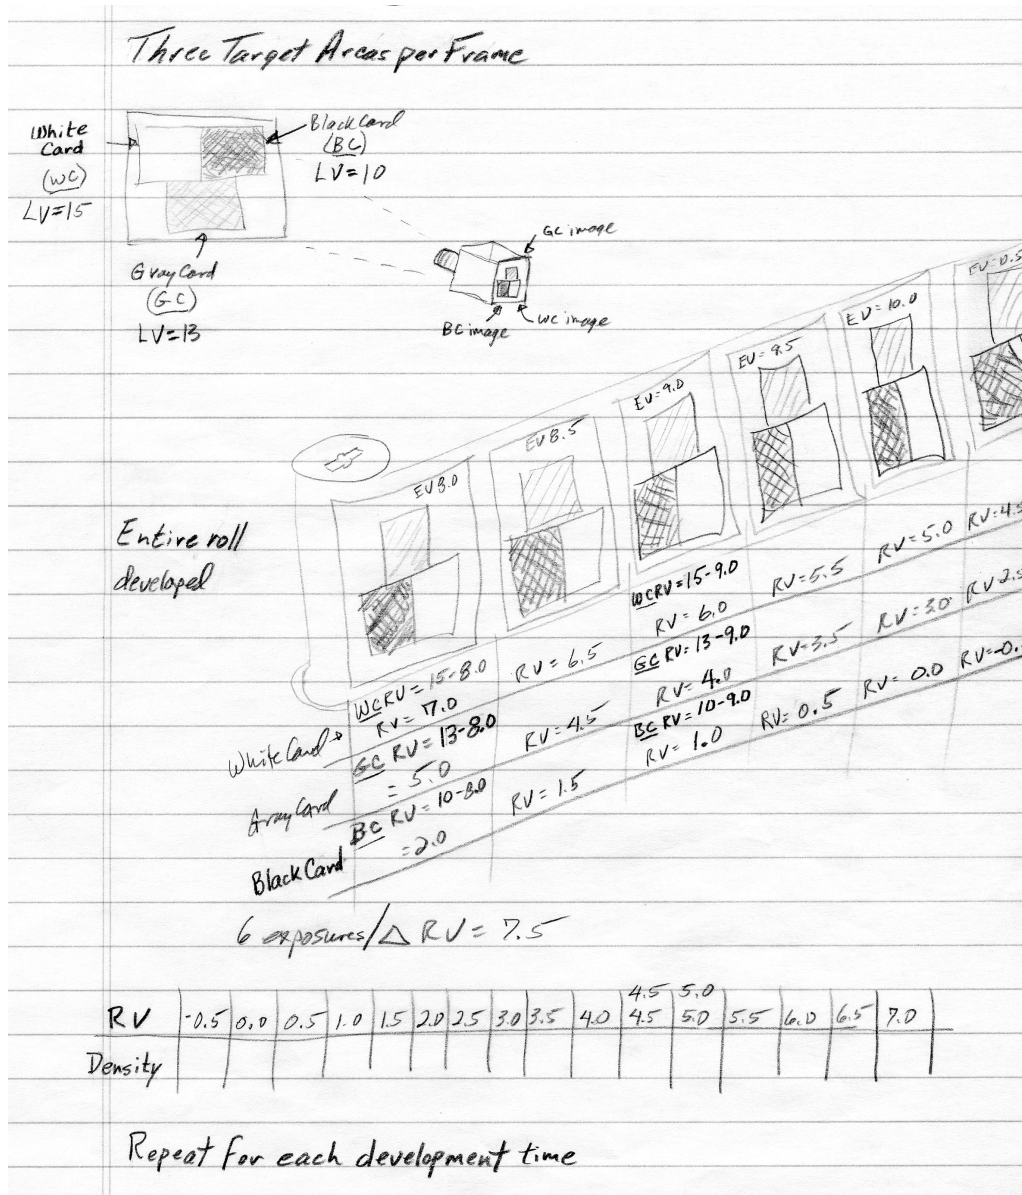 Three Target Areas per Frame
White
Card
(WC)
LV=15
Black Card
(BC)
LV=10
Gray Card
(GC)
LV=13
GC image
BC image
WC image
EV 8.0
EV 8.5
EV=9.0
EV=9.5
EV=10.0
Entire roll
developed
White Card
WC RV = 15-8.0
RV = 7.0
RV = 6.5
WC RV = 15-9.0
RV = 6.0
RV = 5.5
RV = 5.0
RV = 4.5
Gray Card
GC RV = 13-8.0
= 5.0
RV = 4.5
GC RV = 13-9.0
RV = 4.0
RV = 3.5
RV = 3.0
RV 2.5
Black Card
BC RV = 10-8.0
=2.0
RV = 1.5
BC RV = 10-9.0
RV = 1.0
RV = 0.5
RV = 0.0
RV=-0.
6 exposures/△ RV = 7.5
4.5 5.0
RV -0.5 0.0 0.5 1.0 1.5 2.0 2.5 3.0 3.5 4.0 4.5 5.0 5.5 6.0 6.5 7.0
Density
Repeat for each development time